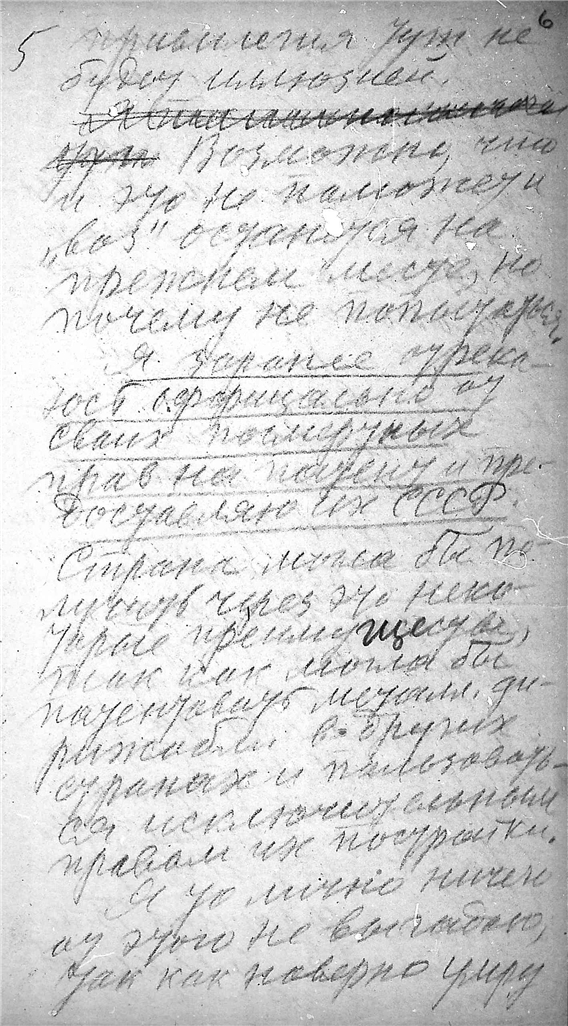 5 6
привилегия тут не
будет иллюзией.
Возможно, что
и это не поможет и
„воз" останется на
прежнем месте, но
почему не попытаться.
Я заранее отрека-
юсь официально от
своих посмертных
прав на патент и пре-
доставляю их СССР.
Страна могла бы по-
лучить через это неко-
торые преимущества,
так как могла бы
патентовать металл. ди-
рижабли в других
странах и пользовать-
ся исключительным
правом их постройки.
Я то лично ничего
от этого не выгадаю,
так как наверно умру